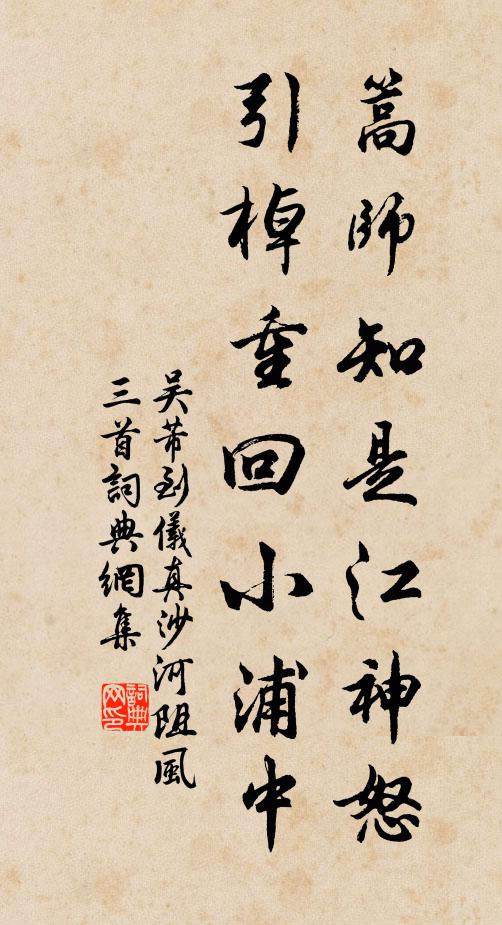 篙師知是江神怒
引棹重回小浦中
吴芾到儀真沙河阻風
三首詞典網集
詞典
网印